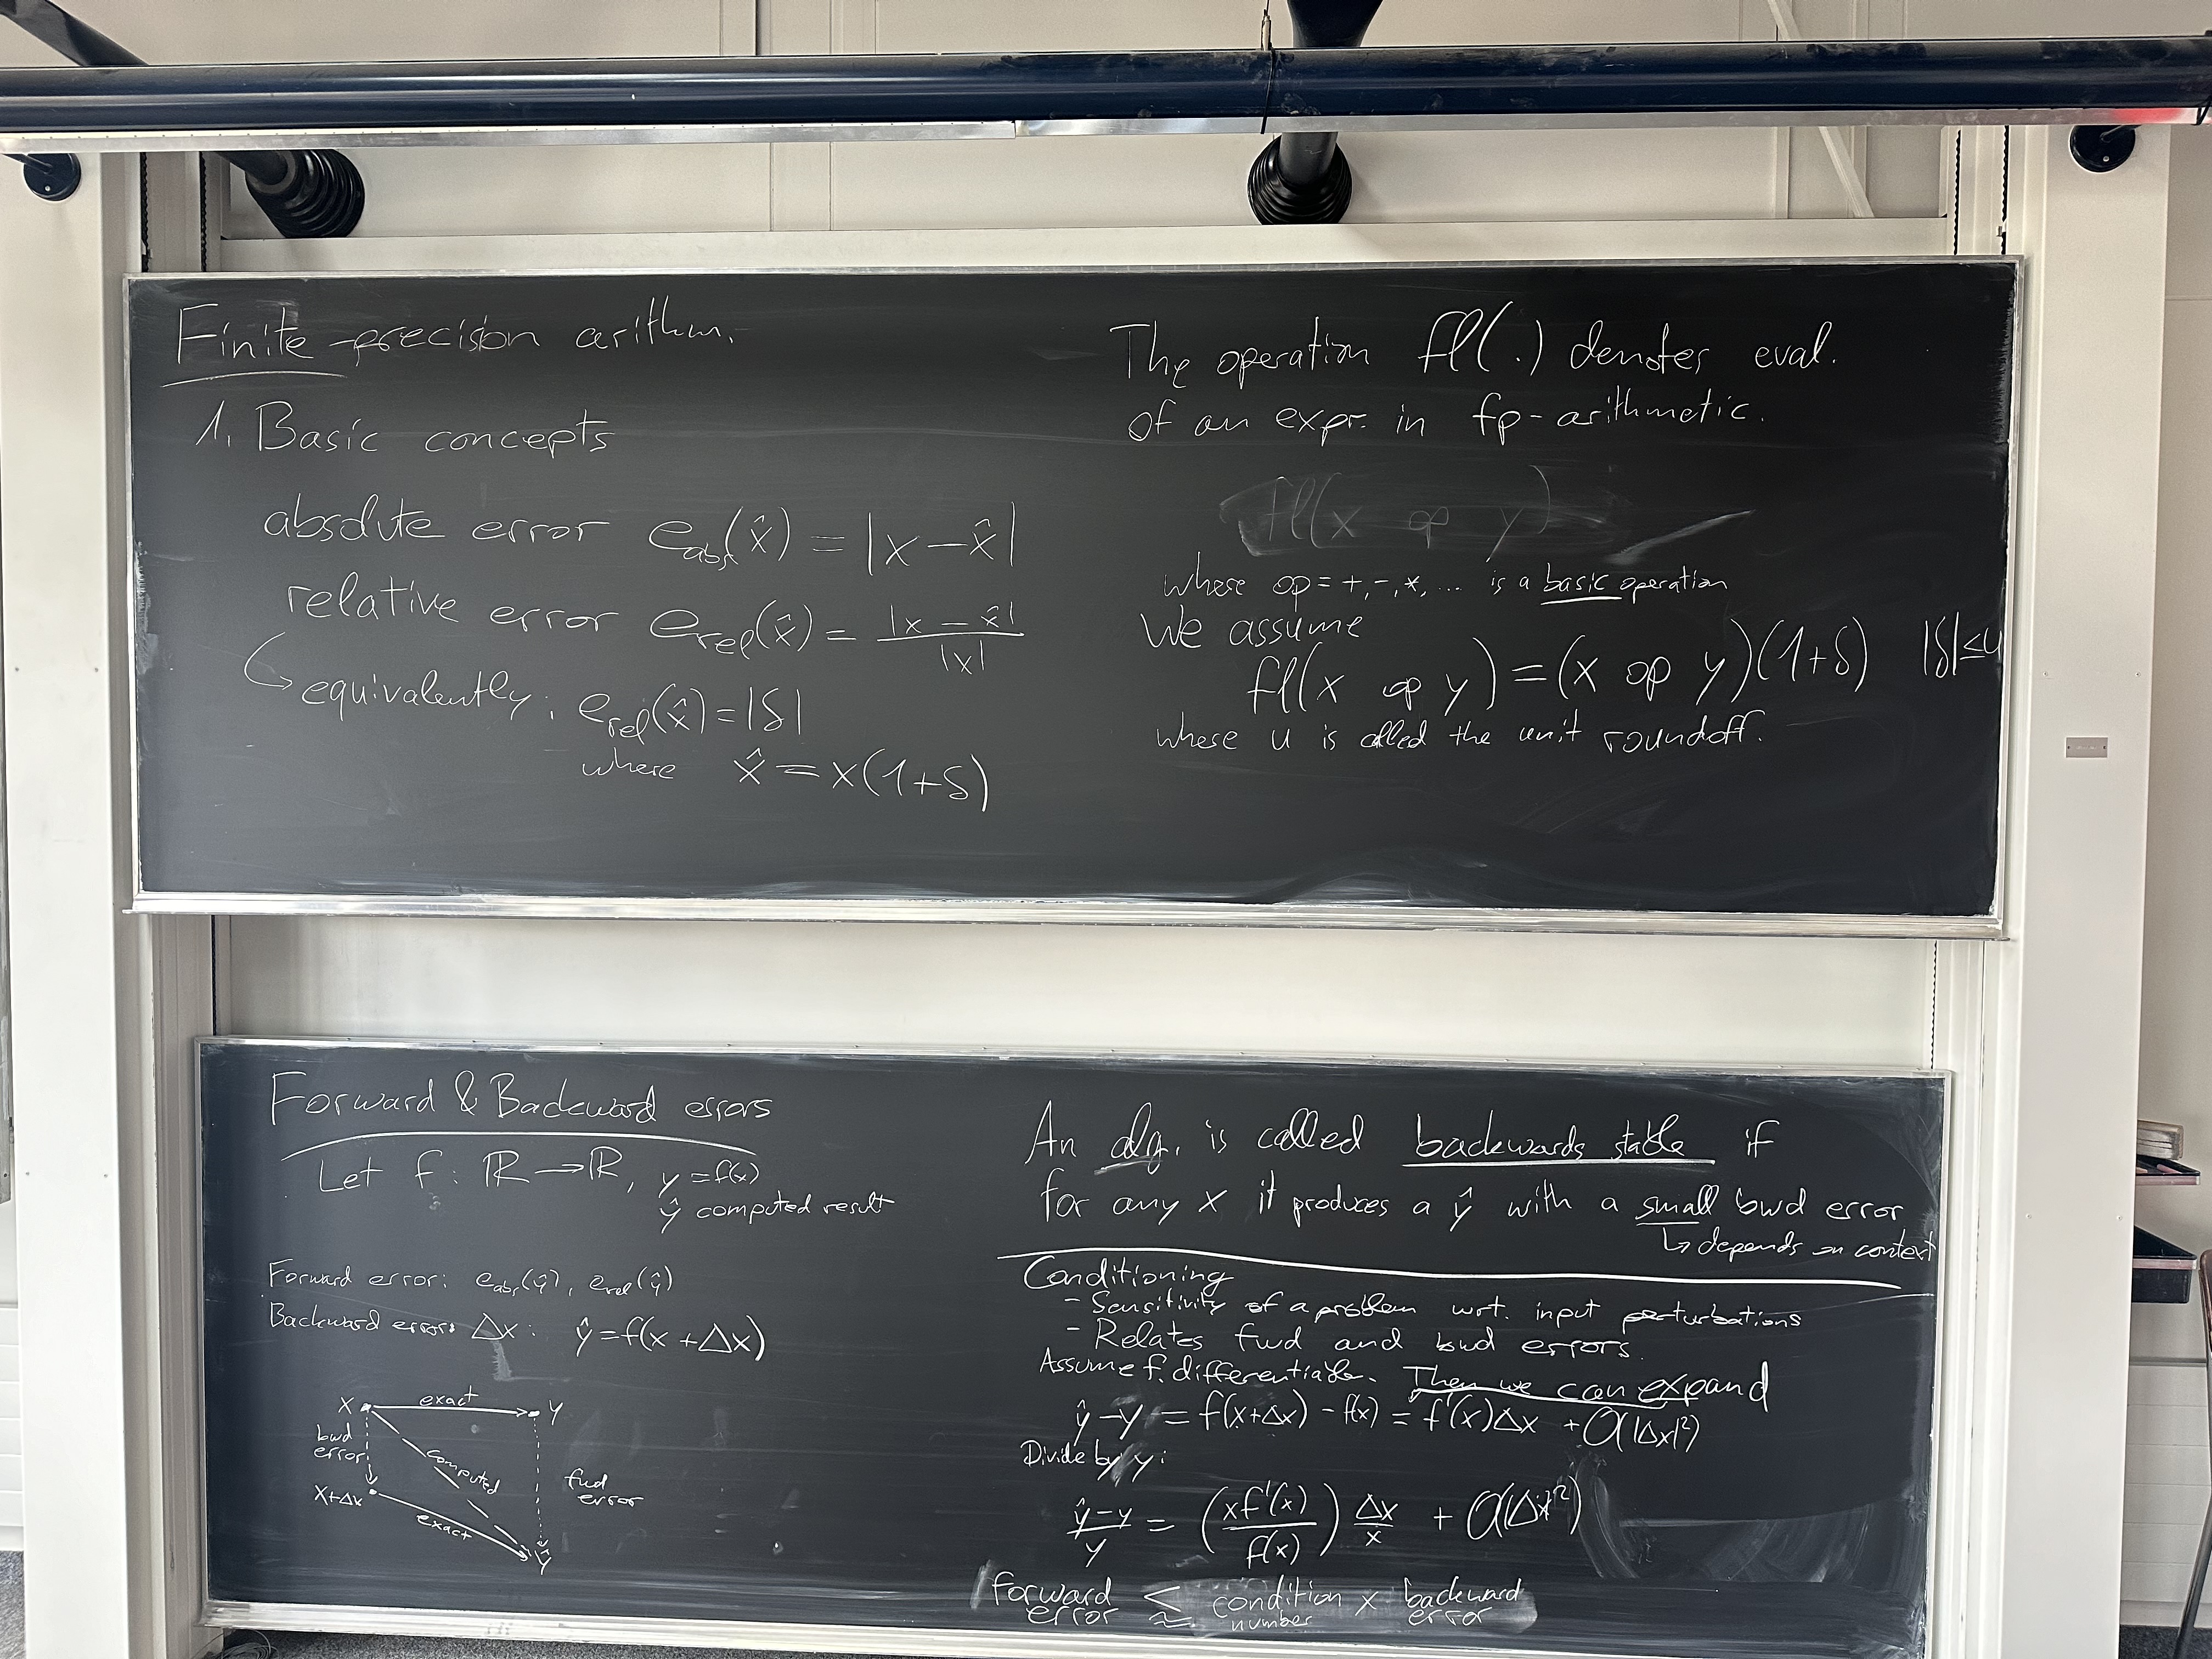 Finite-precision arithm.
1. Basic concepts
absolute error e_abs(x̂) = |x - x̂|
relative error e_rel(x̂) = |x - x̂| / |x|
↳ equivalently: e_rel(x̂) = |δ|
where x̂ = x(1+δ)
The operation fl(.) denotes eval.
of an expr. in fp-arithmetic.
fl(x op y)
where op = +, -, *, ... is a basic operation
We assume
fl(x op y) = (x op y)(1+δ) |δ| ≤ u
where u is called the unit roundoff.
Forward & Backward errors
Let f: ℝ → ℝ, y = f(x)
ŷ computed result
Forward error: e_abs(ŷ), e_rel(ŷ)
Backward error: Δx: ŷ = f(x + Δx)
x exact y
bwd
error
computed
fwd
error
x+Δx
exact
ŷ
An alg. is called backwards stable if
for any x it produces a ŷ with a small bwd error
↳ depends on context
Conditioning
- Sensitivity of a problem wrt. input perturbations
- Relates fwd and bwd errors.
Assume f. differentiable. Then we can expand
ŷ - y = f(x+Δx) - f(x) = f'(x)Δx + O(|Δx|²)
Divide by y:
(ŷ - y) / y = (x f'(x) / f(x)) Δx / x + O(|Δx|²)
forward ≲ condition × backward
error number error